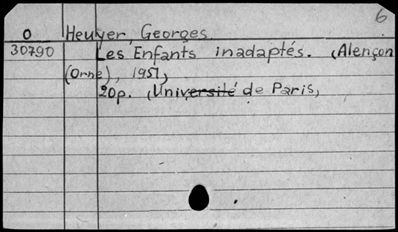 6
O Heuyer, Georges.
30790 Les Enfants inadaptés. (Alençon
(Orne), 1951,
20p. (Université de Paris,